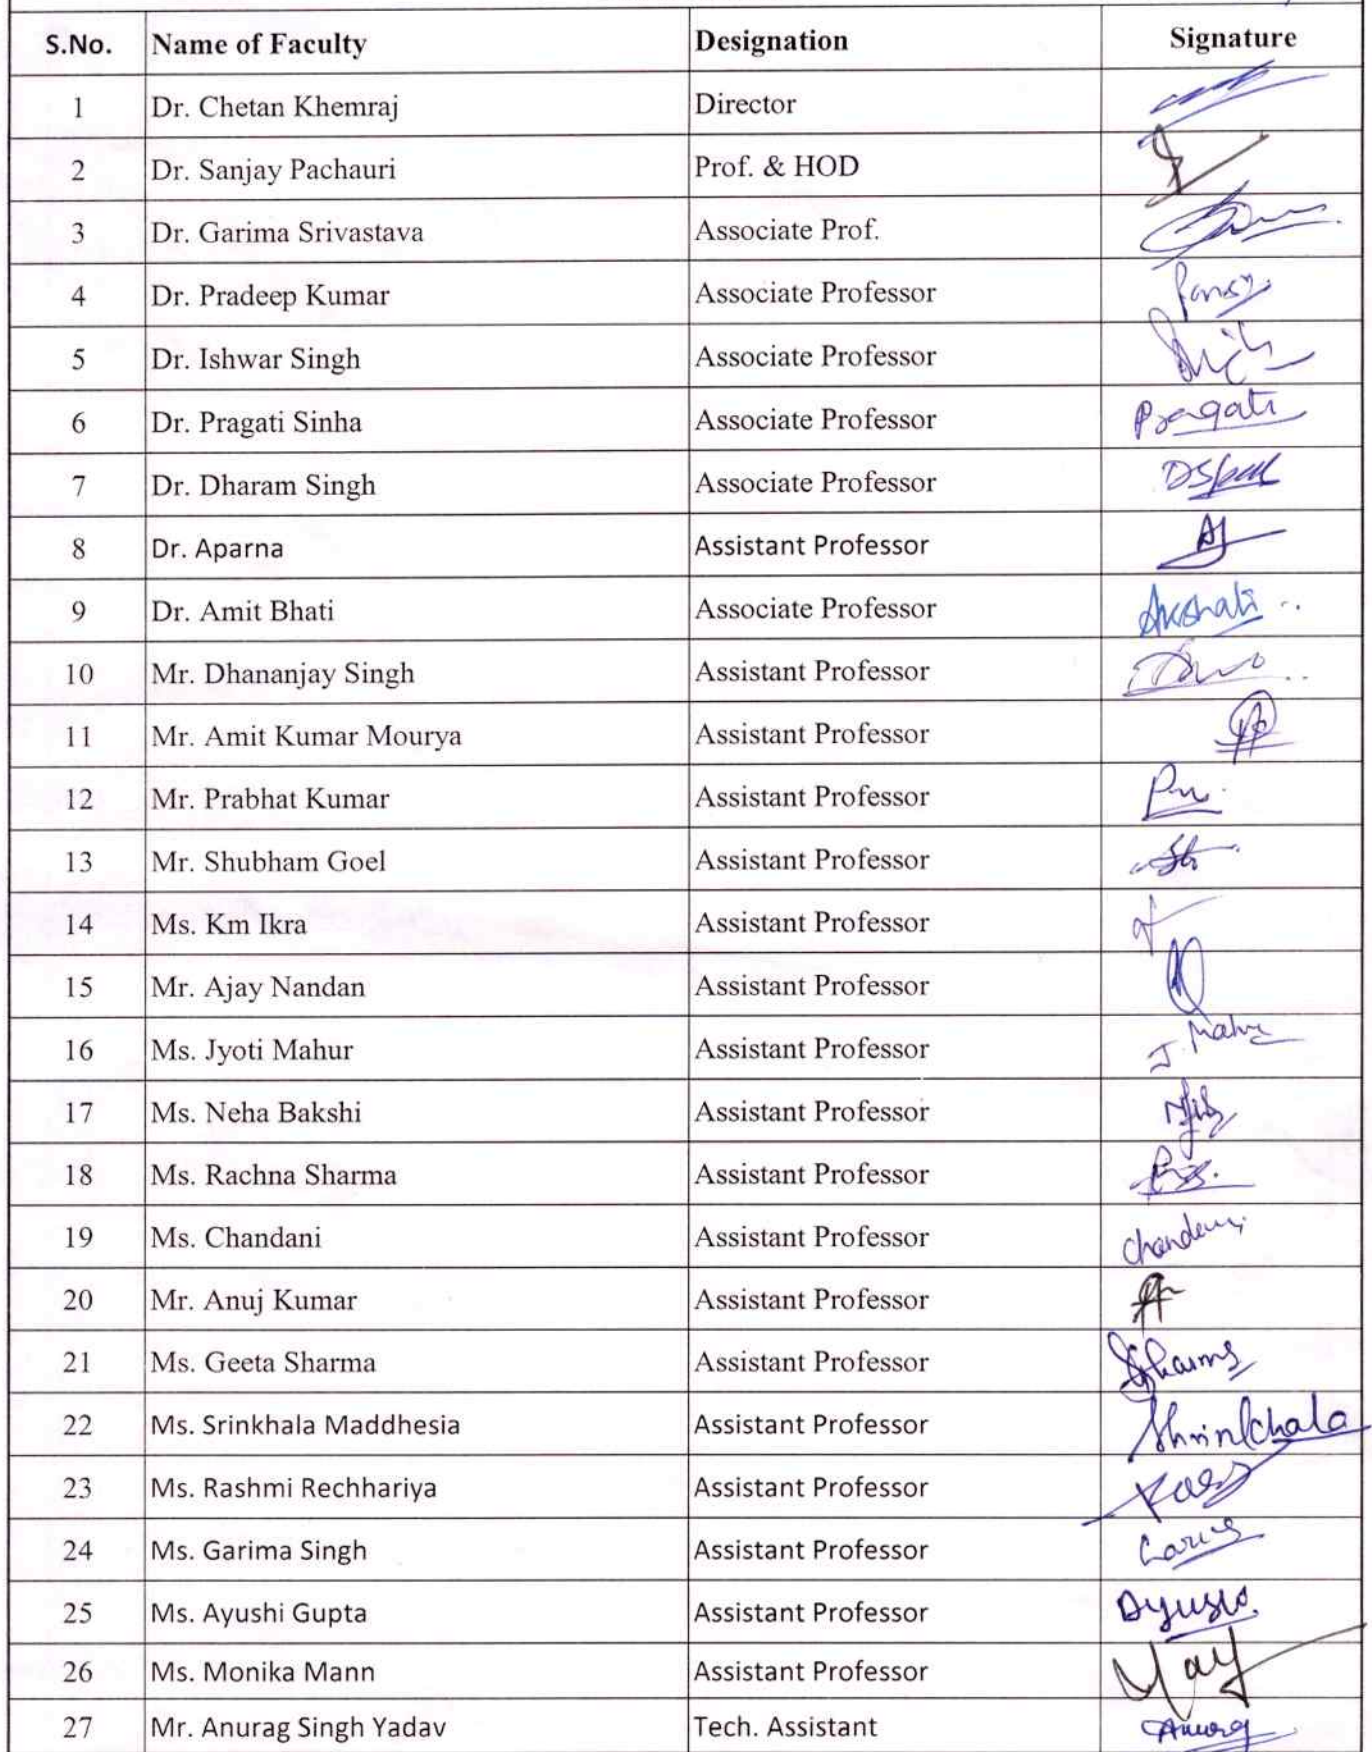 S.No. Name of Faculty Designation Signature
1 Dr. Chetan Khemraj Director
2 Dr. Sanjay Pachauri Prof. & HOD
3 Dr. Garima Srivastava Associate Prof.
4 Dr. Pradeep Kumar Associate Professor
5 Dr. Ishwar Singh Associate Professor
6 Dr. Pragati Sinha Associate Professor Pragati
7 Dr. Dharam Singh Associate Professor
8 Dr. Aparna Assistant Professor
9 Dr. Amit Bhati Associate Professor
10 Mr. Dhananjay Singh Assistant Professor
11 Mr. Amit Kumar Mourya Assistant Professor
12 Mr. Prabhat Kumar Assistant Professor
13 Mr. Shubham Goel Assistant Professor
14 Ms. Km Ikra Assistant Professor
15 Mr. Ajay Nandan Assistant Professor
16 Ms. Jyoti Mahur Assistant Professor
17 Ms. Neha Bakshi Assistant Professor
18 Ms. Rachna Sharma Assistant Professor
19 Ms. Chandani Assistant Professor
20 Mr. Anuj Kumar Assistant Professor
21 Ms. Geeta Sharma Assistant Professor
22 Ms. Srinkhala Maddhesia Assistant Professor Shrinkhala
23 Ms. Rashmi Rechhariya Assistant Professor
24 Ms. Garima Singh Assistant Professor
25 Ms. Ayushi Gupta Assistant Professor
26 Ms. Monika Mann Assistant Professor
27 Mr. Anurag Singh Yadav Tech. Assistant